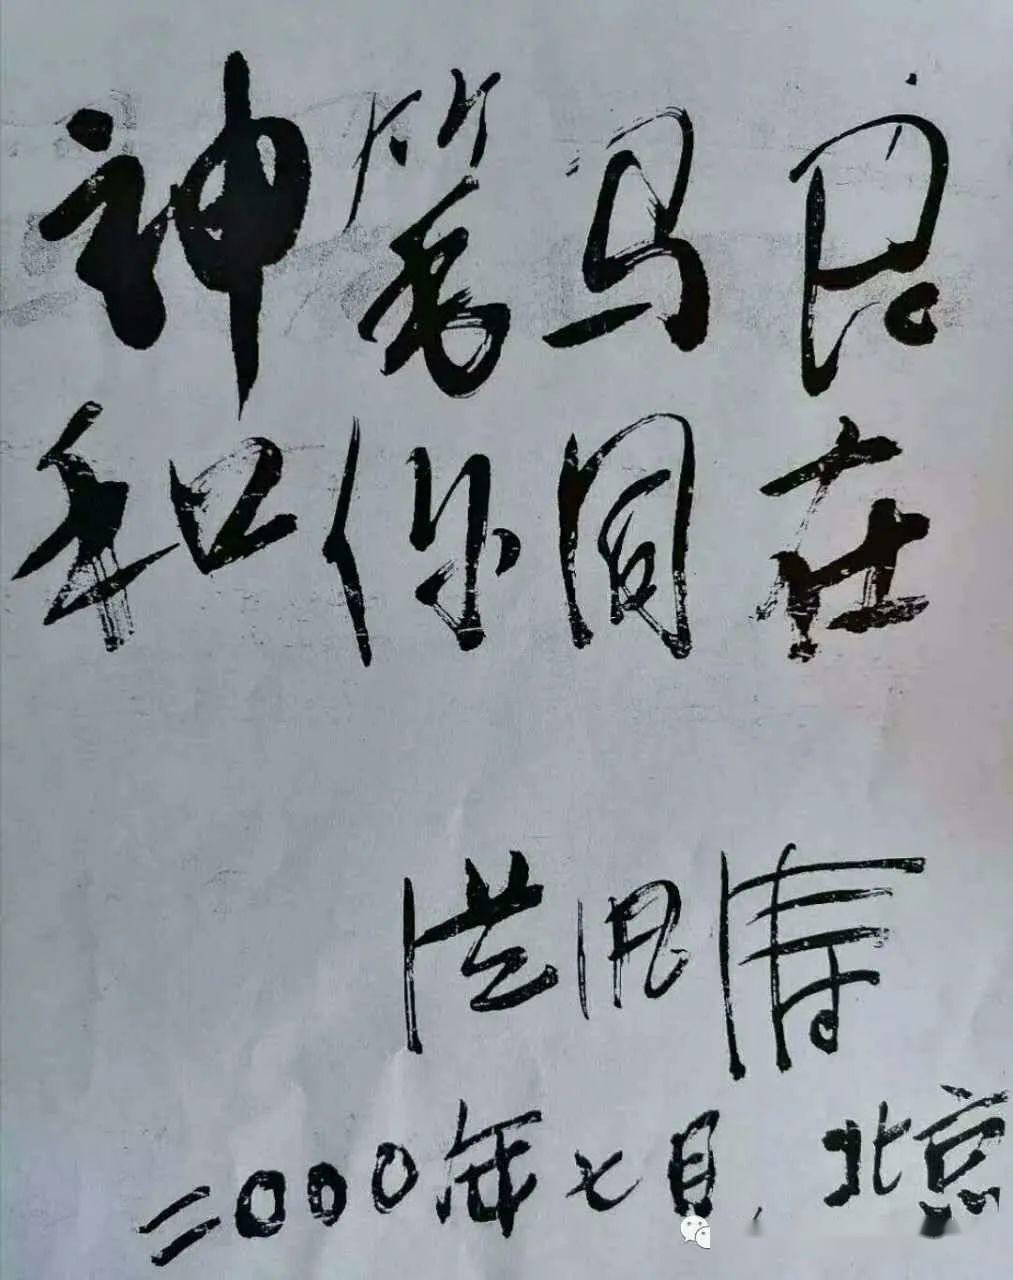 神笔马良
和你同在
洪汛涛
二000年七月.北京